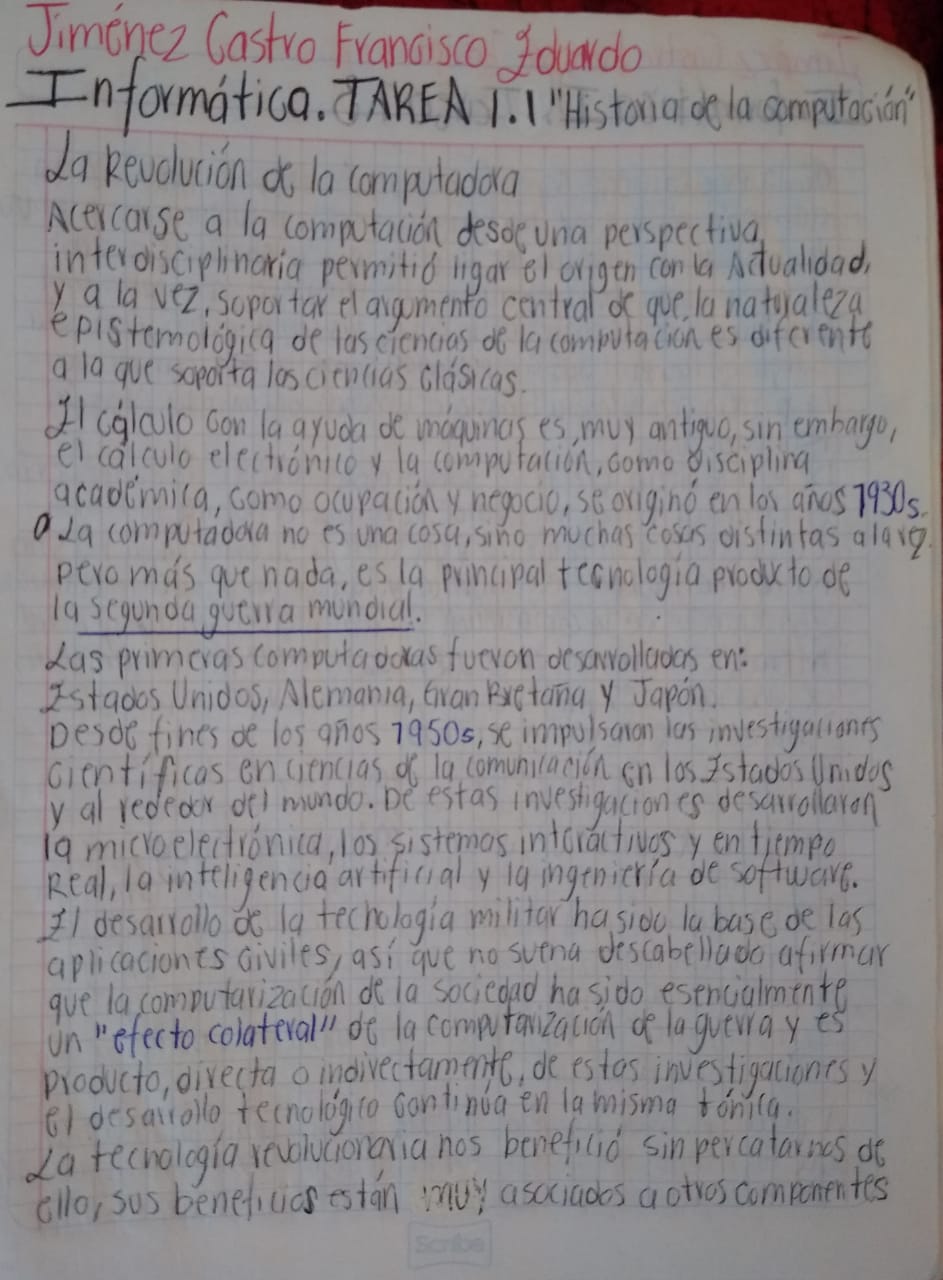 Jiménez Castro Francisco Eduardo
Informática. TAREA 1.1 "Historia de la computación"
La Revolución de la computadora
Acercarse a la computación desde una perspectiva
interdisciplinaria permitió ligar el origen con la Actualidad,
y a la vez, soportar el argumento central de que, la naturaleza
epistemológica de las ciencias de la computación es diferente
a la que soporta las ciencias clásicas.
El cálculo con la ayuda de máquinas es, muy antiguo, sin embargo,
el cálculo electrónico y la computación, como disciplina
académica, como ocupación y negocio, se originó en los años 1930s.
La computadora no es una cosa, sino muchas cosas distintas a la vez.
Pero más que nada, es la principal tecnología producto de
la segunda guerra mundial.
Las primeras computadoras fueron desarrolladas en:
Estados Unidos, Alemania, Gran Bretaña y Japón.
Desde fines de los años 1950s, se impulsaron las investigaciones
científicas en ciencias de la comunicación en los Estados Unidos
y al rededor del mundo. De estas investigaciones desarrollaron
la microelectrónica, los sistemas interactivos y en tiempo
Real, la inteligencia artificial y la ingeniería de software.
El desarrollo de la techología militar ha sido la base de las
aplicaciones civiles, así que no suena descabellado afirmar
que la computarización de la sociedad ha sido esencialmente
un "efecto colateral" de la computarización de la guerra y es
producto, directa o indirectamente, de estas investigaciones y
el desarrollo tecnológico continúa en la misma tónica.
La tecnología revolucionaria nos benefició sin percatarnos de
ello, sus beneficios están muy asociados a otros componentes
Scribe